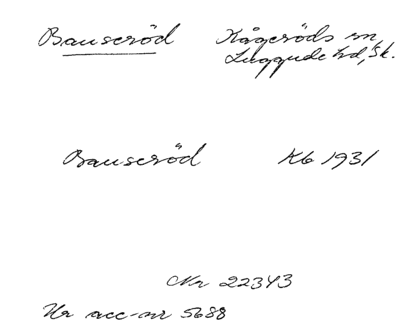 Bauseröd Kågeröds sn
Luggude hd, Sk.
Bauseröd Kb 1931
Nr 22343
Ur acc-nr 5688